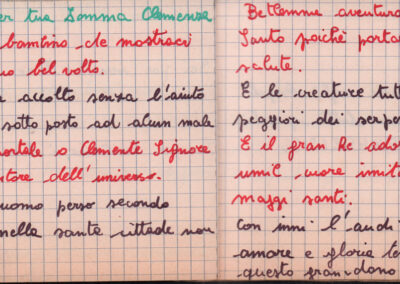 er tua Somma Clemenza
bambino de mostraci
uo bel volto.
accolto senza l'aiuto
sotto posto ad alcun male
mortale o Clemente Signore
tore dell'universo.
uomo perso secondo
nella santa cittade non
Betlemme aventura
Santo poichè porta
salute.
E le creature tutt
peggiori dei serpe
E il gran Re ado
umil cuore imita
maggi santi.
Con inni l'audi
amore e gloria te
questo gran dono